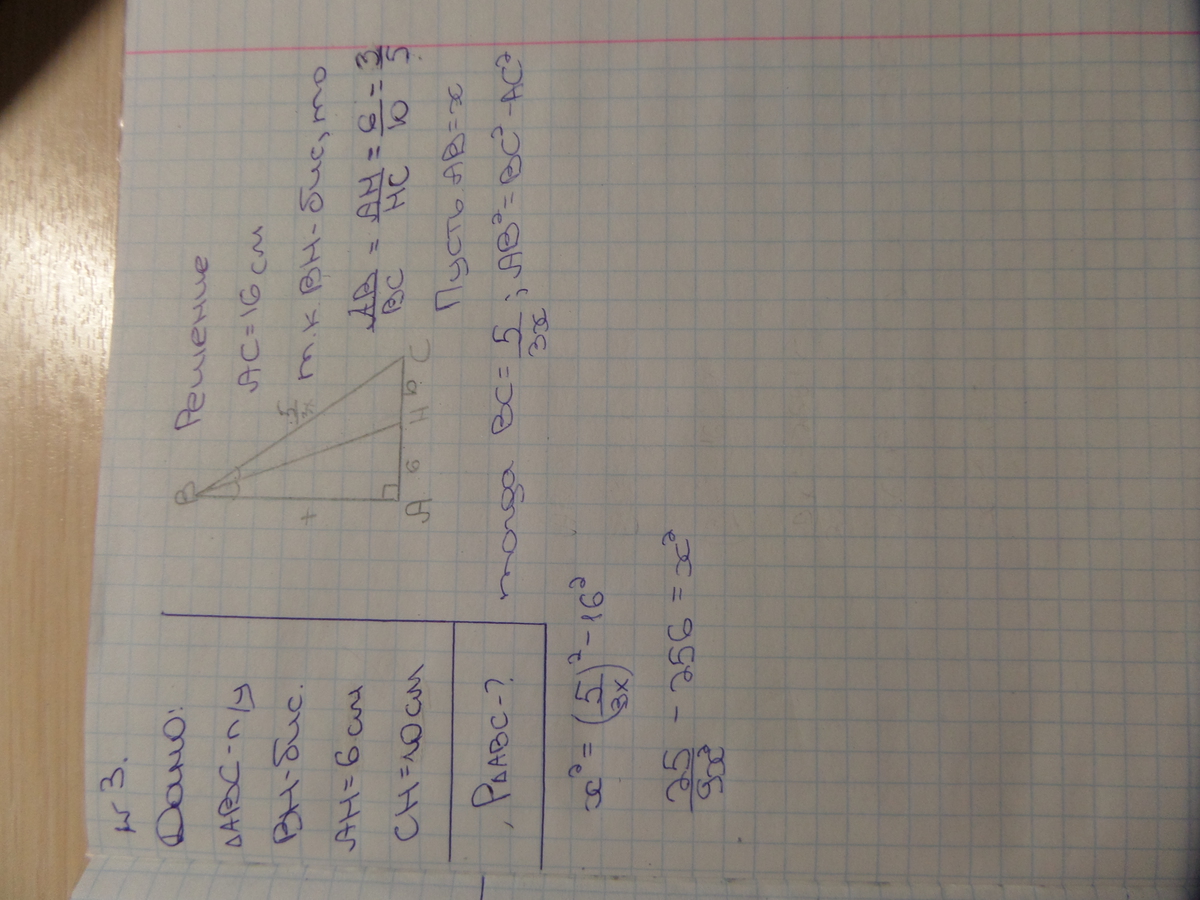 №3.
Дано:
△ABC-п/у
BH-бис.
AH=6 см
CH=10 см
P△ABC-?
Решение
AC=16 см
т.к BH-бис, то
AB/BC = AH/HC = 6/10 = 3/5
Пусть AB=x
тогда BC= 5/3x ; AB²=BC²-AC²
x²=(5/3x)²-16²
25/9x² - 256 = x²
B
5/3x
x
6
10
A
H
C